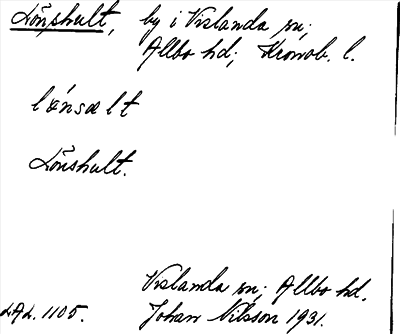 Lönshult, by i Vislanda sn;
Allbo hd; Kronob. l.
lǿnsælt
Lönshult.
Vislanda sn; Allbo hd.
LAL. 1105. Johan Nilsson 1931.